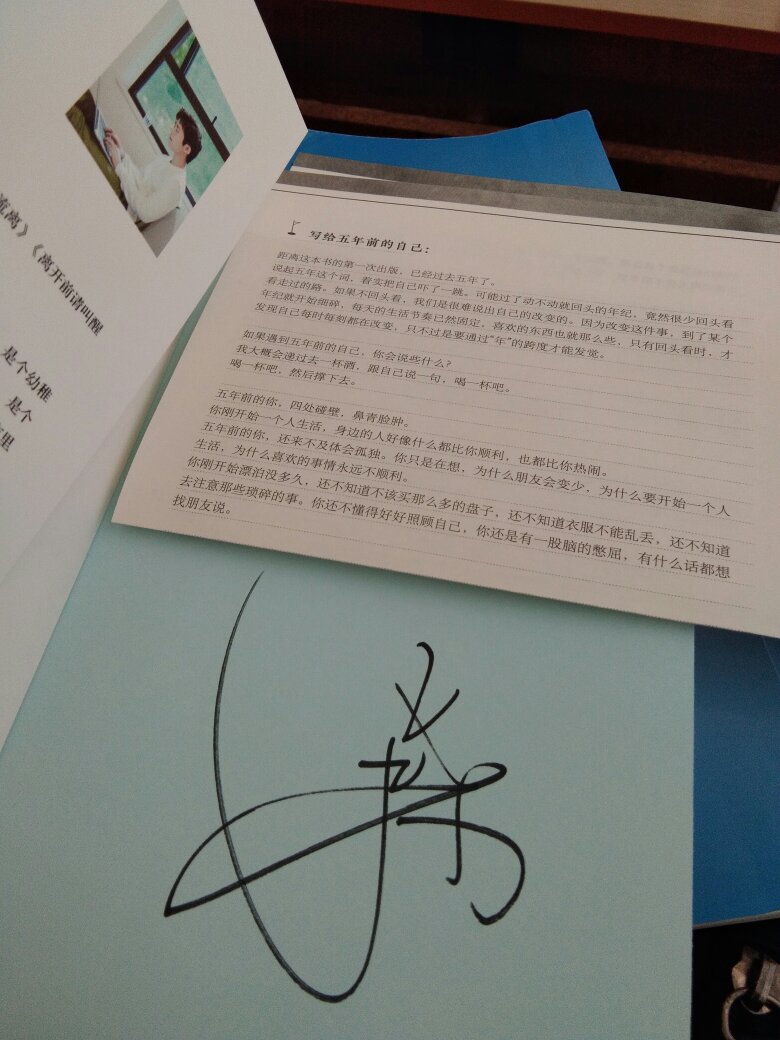 流离》《离开前请叫醒
是个幼稚
是个
写给五年前的自己：
距离这本书的第一次出版，已经过去五年了。
说起五年这个词，着实把自己吓了一跳。可能过了动不动就回头的年纪，竟然很少回头看
看走过的路。如果不回头看，我们是很难说出自己的改变的。因为改变这件事，到了某个
年纪就开始细碎，每天的生活节奏已然固定，喜欢的东西也就那么些，只有回头看时，才
发现自己每时每刻都在改变，只不过是要通过“年”的跨度才能发觉。
如果遇到五年前的自己，你会说些什么？
我大概会递过去一杯酒，跟自己说一句，喝一杯吧。
喝一杯吧，然后撑下去。
五年前的你，四处碰壁，鼻青脸肿。
你刚开始一个人生活，身边的人好像什么都比你顺利，也都比你热闹。
五年前的你，还来不及体会孤独。你只是在想，为什么朋友会变少，为什么要开始一个人
生活，为什么喜欢的事情永远不顺利。
你刚开始漂泊没多久，还不知道不该买那么多的盘子，还不知道衣服不能乱丢，还不知道
去注意那些琐碎的事。你还不懂得好好照顾自己，你还是有一股脑的憋屈，有什么话都想
找朋友说。